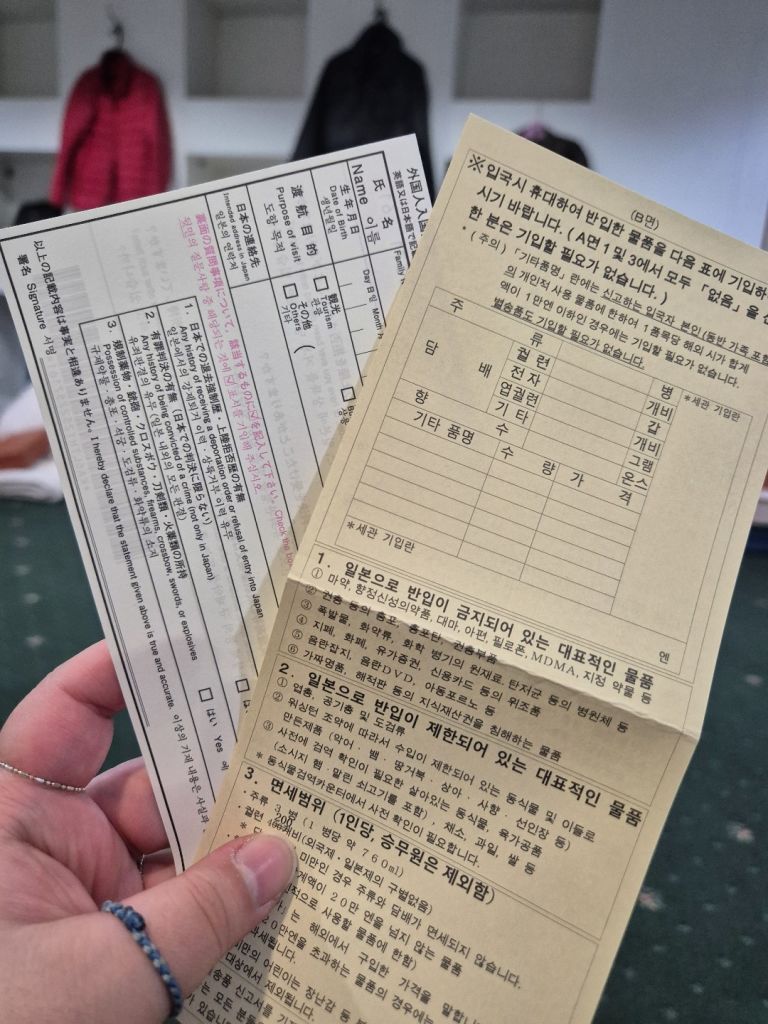 外国人入
英語又は日本語で記
氏 名
Name 이름
Family
生年月日
Date of Birth
생년월일
Day 日 일 Month
渡航目的
Purpose of visit
도항 목적
観光
Tourism
관광
その他
Others
기타
日本の連絡先
Intended address in Japan
일본의 연락처
裏面の質問事項について、該当するものに☑を記入して下さい。Check the bo
1. 日本での退去強制歴・上陸拒否歴の有無
Any history of receiving a deportation order or refusal of entry into Japan
일본에서의 강제퇴거 이력・상륙거부 이력 유무
2. 有罪判決の有無(日本での判決に限らない)
Any history of being convicted of a crime (not only in Japan)
유죄판결의 유무 (일본 내외의 모든 판결)
3. 規制薬物・銃砲・クロスボウ・刀剣類・火薬類の所持
Possession of controlled substances, firearms, crossbow, swords, or explosives
규제약물・총포・석궁・도검류・화약류의 소지
はい Yes 예
以上の記載内容は事実と相違ありません。I hereby declare that the statement given above is true and accurate. 이상의 기재 내용은 사실과
署名 Signature 서명
(B면)
※입국시 휴대하여 반입한 물품을 다음 표에 기입하
시기 바랍니다. ( A면 1 및 3에서 모두 「없음」을
한 분은 기입할 필요가 없습니다. )
* (주의) 「기타품명」란에는 신고하는 입국자 본인 (동반 가족 포함
의 개인적 사용 물품에 한하여 1품목당 해외 시가 합계
액이 1만엔 이하인 경우에는 기입할 필요가 없습니다.
별송품도 기입할 필요가 없습니다.
주 류 병 *세관 기입란
담 배 궐련 개비
전자 갑
엽궐련 개비
기타 그램
향 수 온스
기타 품명 수 량 가 격
*세관 기입란
엔
1. 일본으로 반입이 금지되어 있는 대표적인 물품
① 마약, 향정신성의약품, 대마, 아편, 필로폰, MDMA, 지정 약물 등
② 권총 등의 총포, 총포탄, 권총부품
③ 폭발물, 화약류, 화학 병기의 원재료, 탄저균 등의 병원체 등
④ 지폐, 화폐, 유가증권, 신용카드 등의 위조품
⑤ 음란잡지, 음란DVD, 아동포르노 등
⑥ 가짜명품, 해적판 등의 지식재산권을 침해하는 물품
2. 일본으로 반입이 제한되어 있는 대표적인 물품
① 엽총, 공기총 및 도검류
② 워싱턴 조약에 따라서 수입이 제한되어 있는 동식물 및 이들로
만든제품 (악어・뱀・땅거북・상아・사향・선인장 등)
③ 사전에 검역 확인이 필요한 살아있는 동식물, 육가공품
(소시지 햄・말린 쇠고기를 포함) , 채소, 과일, 쌀 등
* 동식물검역카운터에서 사전 확인이 필요합니다.
3. 면세범위 (1인당, 승무원은 제외함)
・주류 3 병 (1 병당 약 760ml)
・궐련 200
개비(외국제・일본제의 구별없음)
미만인 경우 주류와 담배가 면세되지 않습니다.
계액이 20만 엔을 넘지 않는 물품
적으로 사용할 물품에 한함)
는 해외에서 구입한 가격을 말합니
20만엔을 초과하는 물품의 경우에는
과세됩니다.
미만의 어린이는 장난감 등
대상에서 제외됩니다.